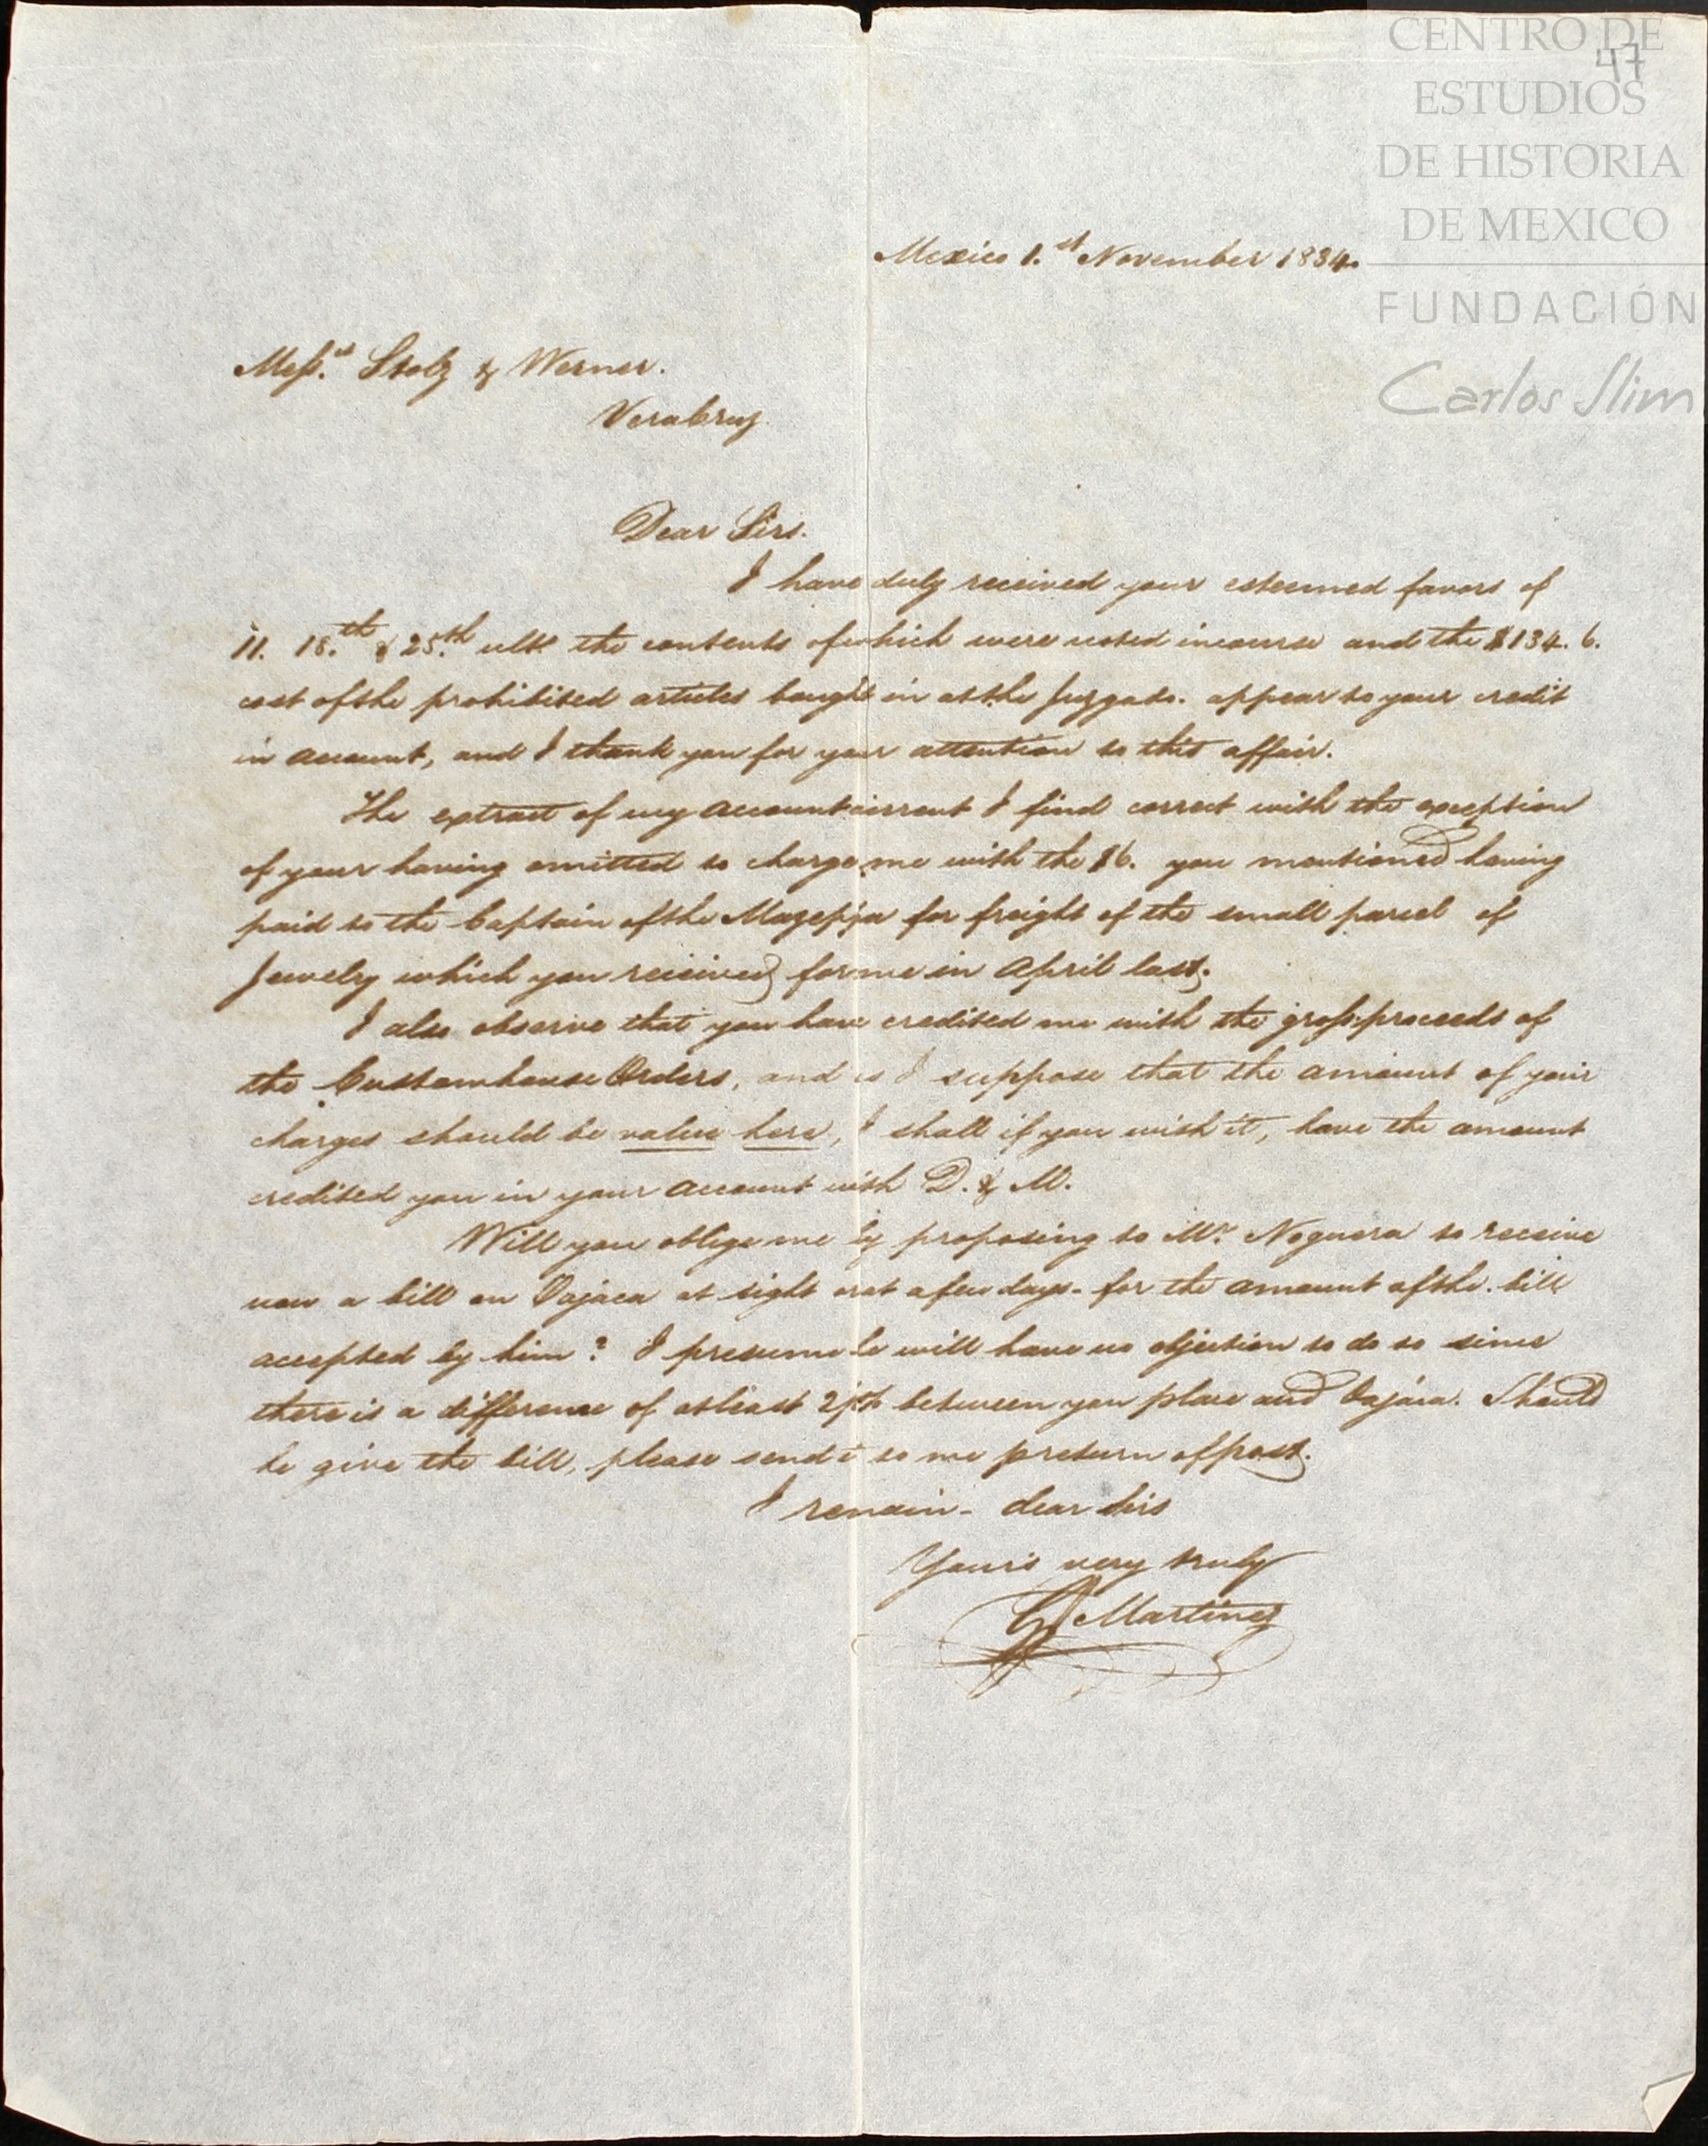 CENTRO DE
47
ESTUDIOS
DE HISTORIA
DE MEXICO
FUNDACIÓN
Carlos Slim
Mexico 1.st November 1834.
Messrs Stolz & Werner.
VeraCruz
Dear Sirs.
I have duly received your esteemed favors of
11. 18.th & 25.th ulto the contents of which were noted in course and the $134. 6.
cost of the prohibited articles bought in at the Juzgado. appear to your credit
in account, and I thank you for your attention to this affair.
The extract of my account current I find correct with the exception
of your having omitted to charge me with the $6. you mentioned having
paid to the Captain of the Mazeppa for freight of the small parcel of
Jewelry which you received for me in April last.
I also observe that you have credited me with the gross proceeds of
the Customhouse Orders, and as I suppose that the amount of your
charges should be value here, I shall if you wish it, have the amount
credited you in your account with D. & M.
Will you oblige me by proposing to Mr. Noguera to receive
now a bill on Oajaca at sight or at a few days. for the amount of the. bill
accepted by him? I presume he will have no objection to do so since
there is a difference of at least 2 between you place and Oajaca. Should
he give the bill, please send it to me p return of post.
I remain - dear Sirs
Yours very truly
Martinez